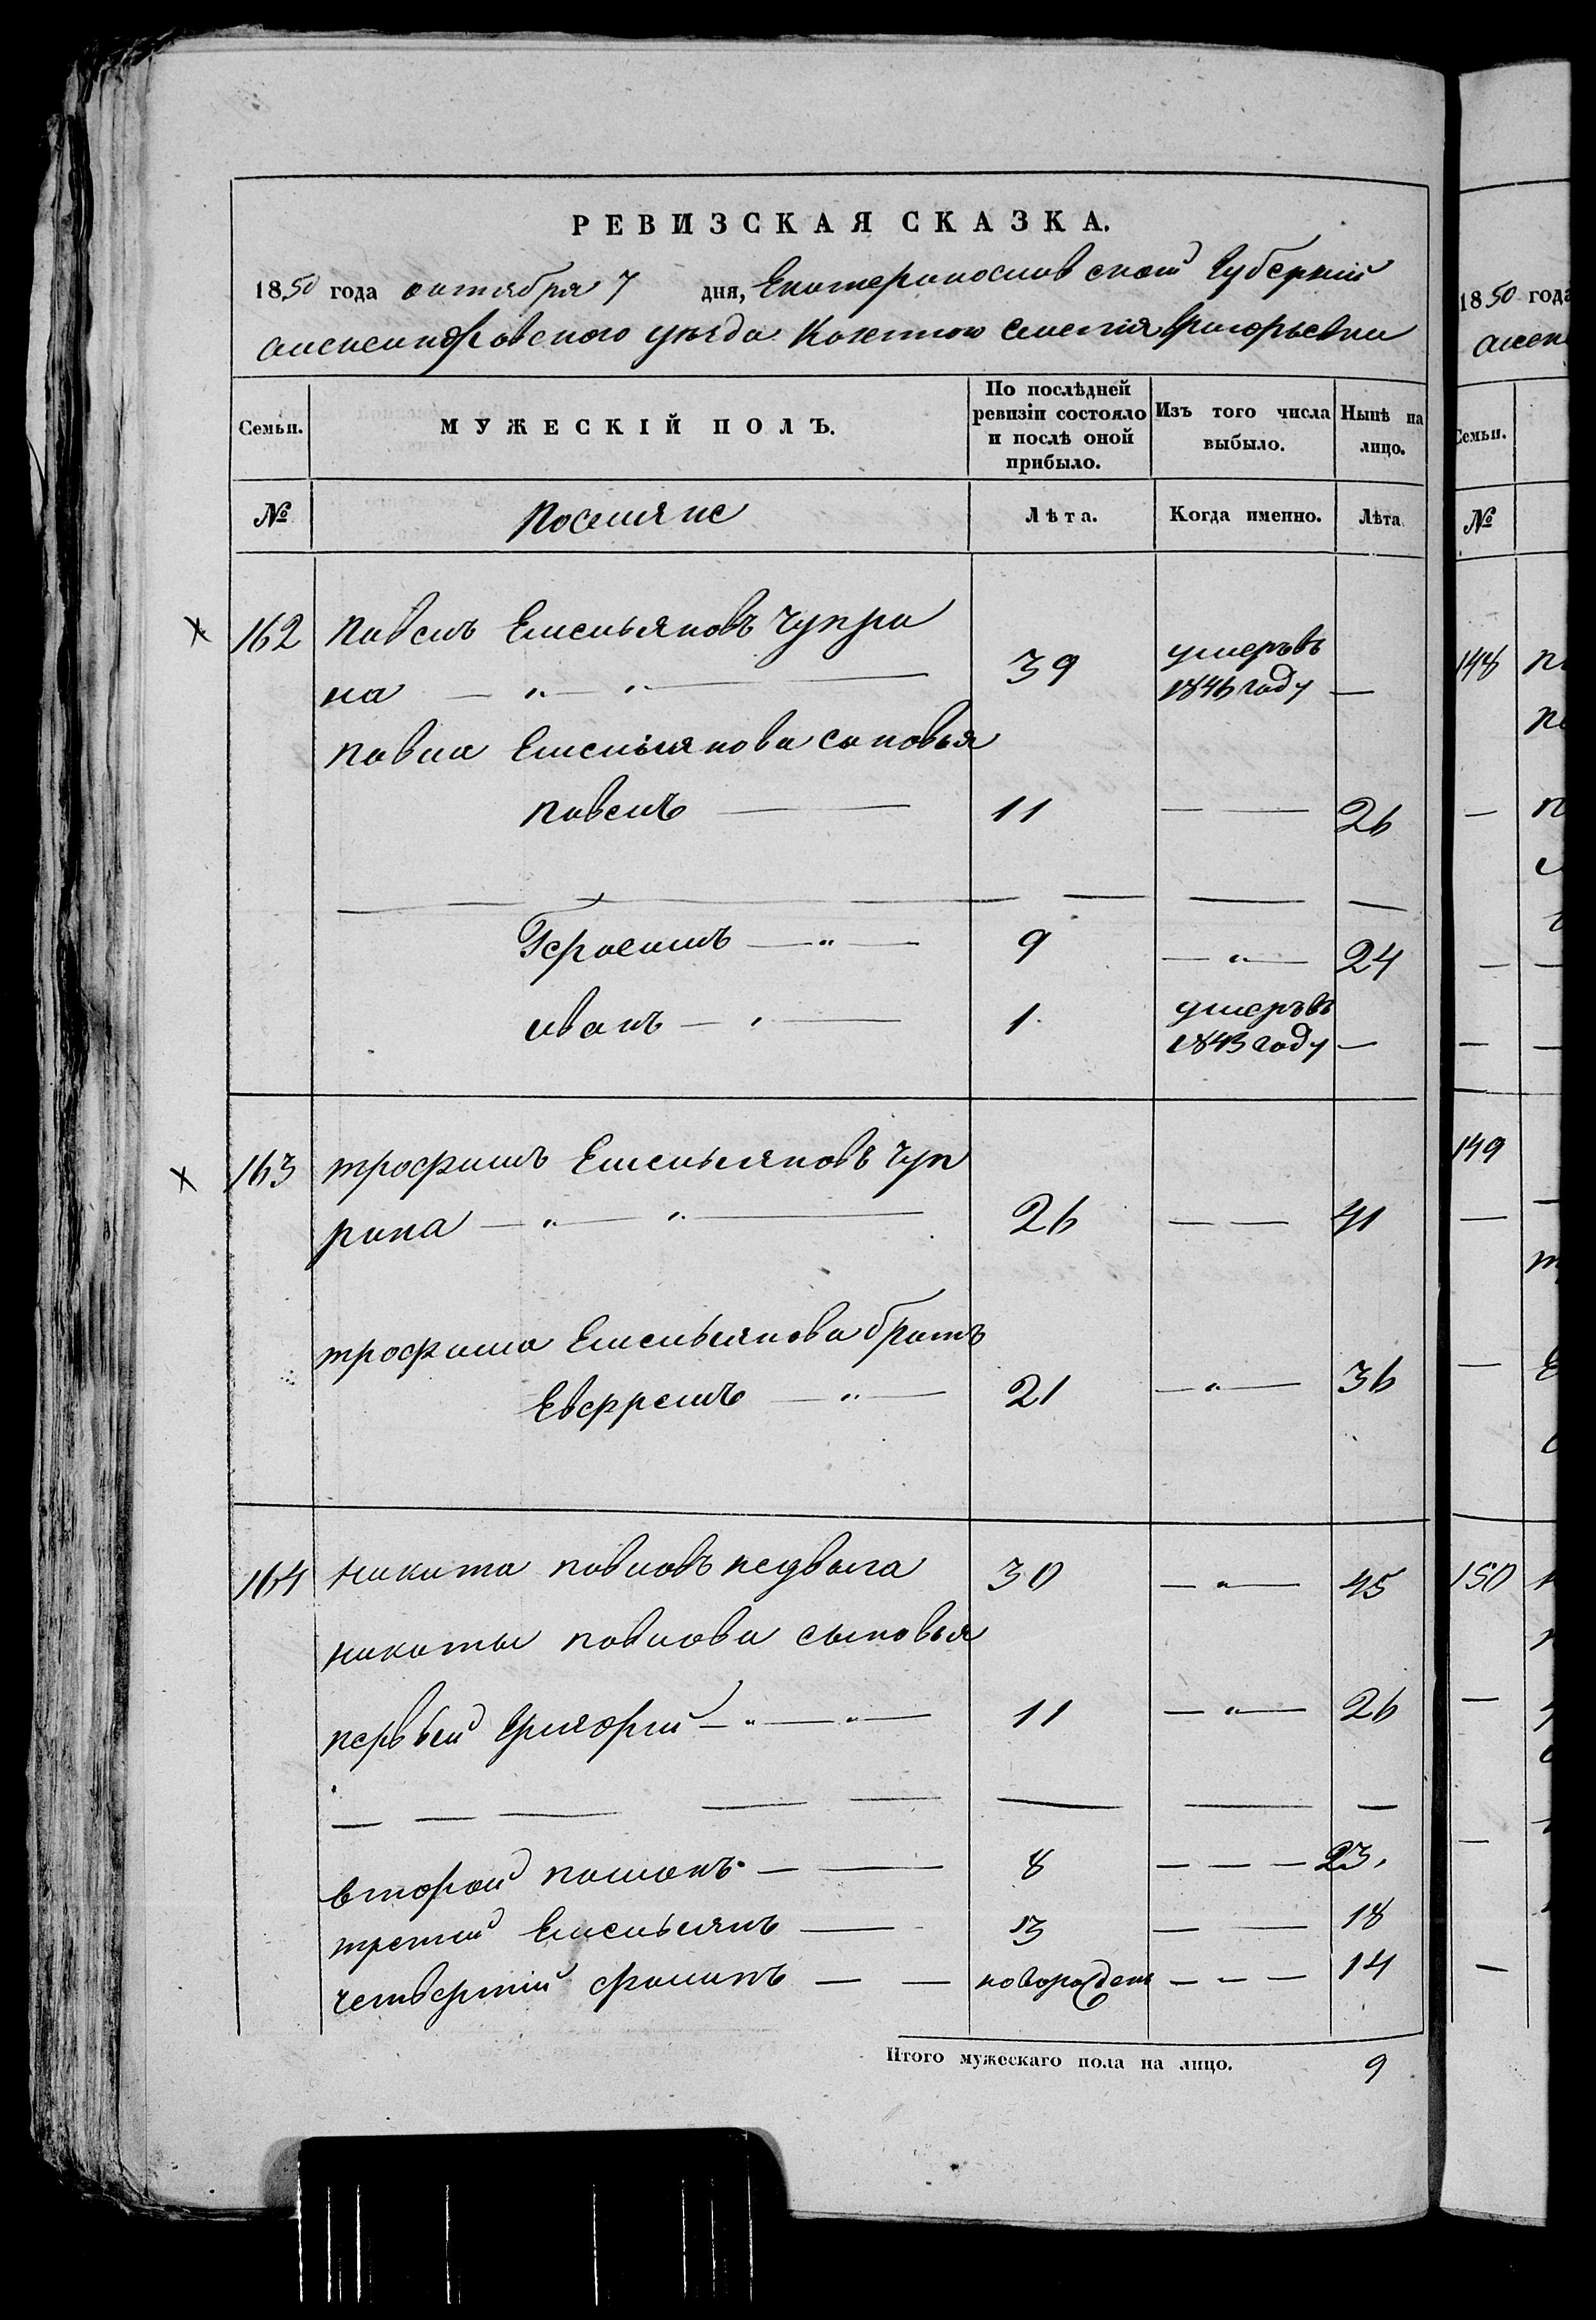 РЕВИЗСКАЯ СКАЗКА.
1850 года октября 7 дня, Екатеринославской Губернии
александровского уезда Казенного селения Григорьевки
Семьи. МУЖЕСКІЙ ПОЛЪ. По послѣдней ревизіи состояло и послѣ оной прибыло. Изъ того числа выбыло. Нынѣ на лицо.
№ Поселяне Лѣта. Когда именно. Лѣта
162 Павелъ Емельяновъ Чупри
на 39 умеръ въ 1846 году —
Павла Емельянова сыновья
Павелъ 11 — 26
Герасимъ 9 — 24
иванъ 1 умеръ въ 1843 году —
163 трофимъ Емельяновъ Чуп
рина 26 — 41
трофима Емельянова братъ
Евфремъ 21 — 36
164 никита павловъ недвыга 30 — 45
никиты павлова сыновья
первый Григорий 11 — 26
второй 8 — 23.
третий Емельянъ 3 — 18
четвертий новорожден — 14
Итого мужескаго пола на лицо. 9
1850 года
алек
Семьи.
№
148
149
150